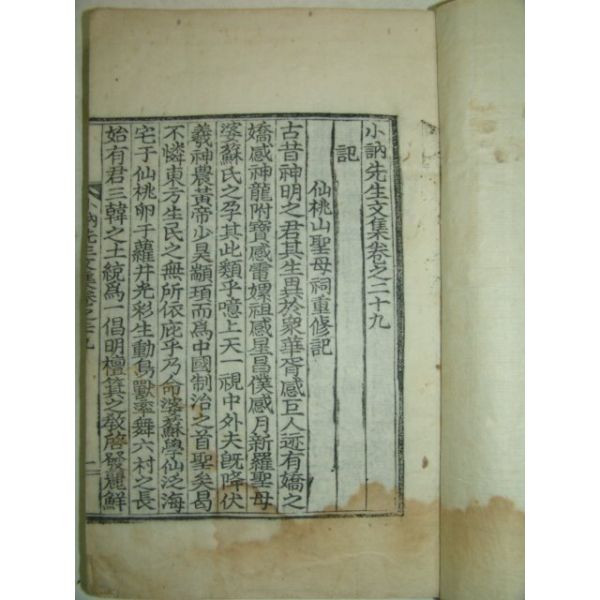 小訥先生文集卷之二十九
記
仙桃山聖母祠重修記
古昔神明之君其生異於衆華胥感巨人迹有嬌之
嬌感神龍附寶感電嫘祖感星昌僕感月新羅聖母
婆蘇氏之孕其此類乎噫上天一視中外夫旣降伏
羲神農黃帝少昊顓頊而爲中國制治之首聖矣曷
不憐東方生民之無所依庇乎乃命婆蘇學仙泛海
宅于仙桃卵于蘿井光彩生動鳥獸率舞六村之長
始有君三韓之土統爲一倡明檀箕之敎啓發麗鮮
小訥先生文集卷之二十九